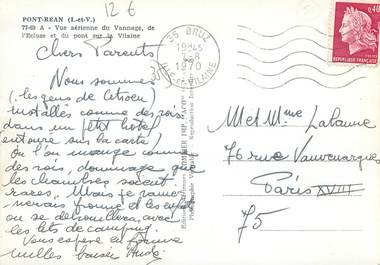 12 €
PONT-RÉAN (I.-et-V.)
77-69 A - Vue aérienne du Vannage, de
l'Ecluse et du pont sur la Vilaine
Chers Parents
Nous sommes
(les gens de Citroën)
installés comme des rois
dans un petit hôtel
entouré sur la carte!
On l'on mange comme
des rois, dommage que
les chambres soient
rares. Mais je ramè-
nerais femme et les enfants
on se débrouillera avec
les lits de camping.
Vous espère en forme
milles baiser
35 BRUZ
1970
ILLE-ET-VILAINE
0,40
REPUBLIQUE FRANÇAISE
M et Mme Lalanne
76 rue Vauvenargues
Paris XVIII
75